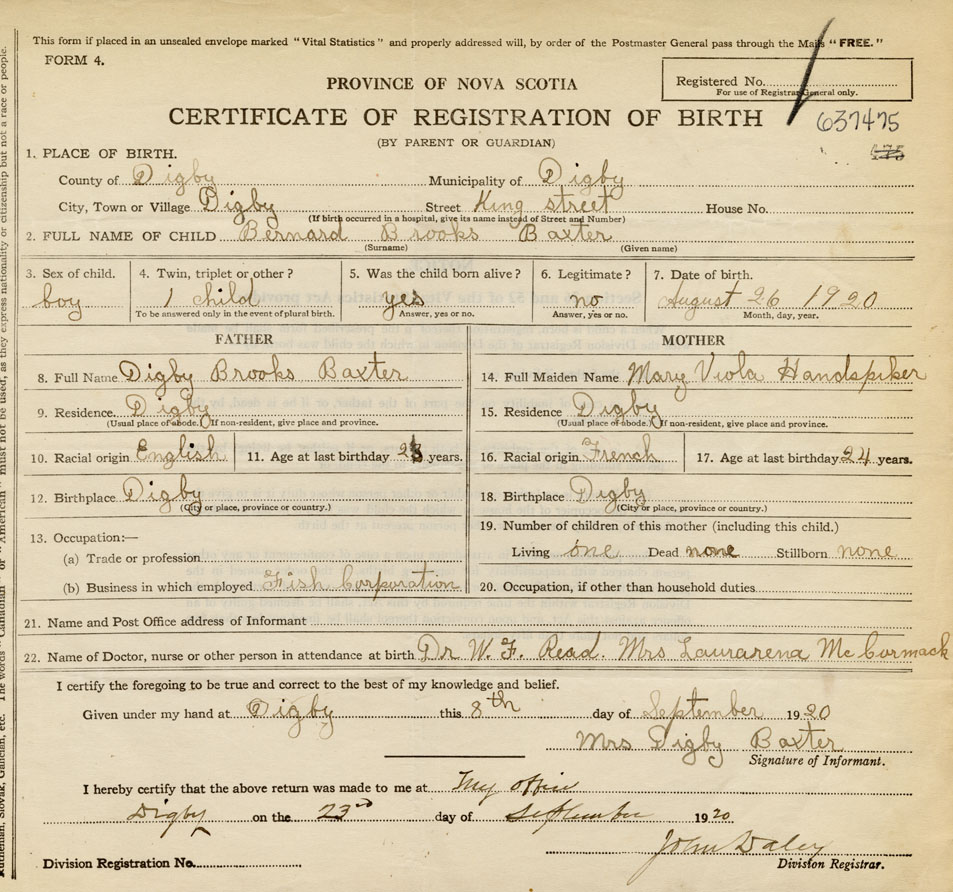 This form if placed in an unsealed envelope marked "Vital Statistics" and properly addressed will, by order of the Postmaster General pass through the Mails "FREE."
FORM 4.
PROVINCE OF NOVA SCOTIA
Registered No.
For use of Registrar General only.
CERTIFICATE OF REGISTRATION OF BIRTH
637475
(BY PARENT OR GUARDIAN)
1. PLACE OF BIRTH.
County of Digby Municipality of Digby
City, Town or Village Digby Street King street House No.
(If birth occurred in a hospital, give its name instead of Street and Number)
2. FULL NAME OF CHILD Bernard Brooks Baxter
(Surname) (Given name)
3. Sex of child. 4. Twin, triplet or other? 5. Was the child born alive? 6. Legitimate? 7. Date of birth.
boy 1 child yes no August 26 1920
To be answered only in the event of plural birth. Answer, yes or no. Answer, yes or no. Month, day, year.
FATHER MOTHER
8. Full Name Digby Brooks Baxter 14. Full Maiden Name Mary Viola Handspiker
9. Residence. Digby 15. Residence Digby
(Usual place of abode.) (If non-resident, give place and province. (Usual place of abode.) (If non-resident, give place and province.
10. Racial origin English 11. Age at last birthday years. 16. Racial origin French 17. Age at last birthday 24 years.
12. Birthplace Digby 18. Birthplace Digby
(City or place, province or country.) (City or place, province or country.)
13. Occupation:— 19. Number of children of this mother (including this child.)
(a) Trade or profession Living one Dead none Stillborn none
(b) Business in which employed Fish Corporation 20. Occupation, if other than household duties
21. Name and Post Office address of Informant
22. Name of Doctor, nurse or other person in attendance at birth Dr W. F. Read. Mrs Laurarena McCormack
I certify the foregoing to be true and correct to the best of my knowledge and belief.
Given under my hand at Digby this 8th day of September 1920
Mrs Digby Baxter
Signature of Informant.
I hereby certify that the above return was made to me at My office
Digby on the 23rd day of September 1920
John Daley
Division Registration No. Division Registrar.
must not be used, as they express nationality or citizenship but not a race or people.
The words "Canadian" or "American"
Ruthenian, Slovak, Galician, etc.